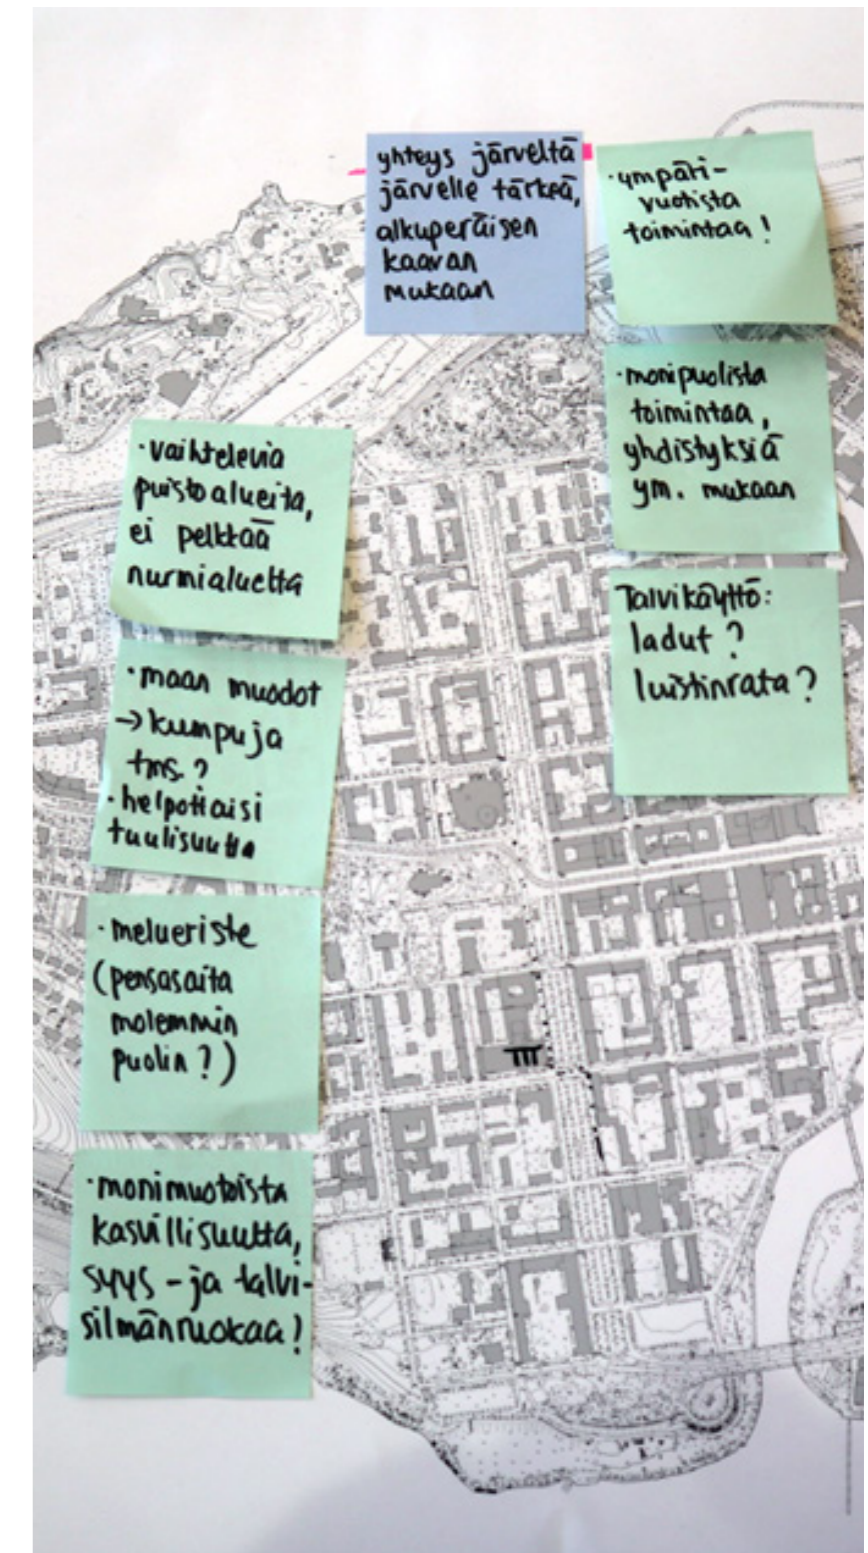 yhteys järveltä
järvelle tärkeä,
alkuperäisen
kaavan
mukaan
·ympäri-
vuotista
toimintaa!
·monipuolista
toimintaa,
yhdistyksiä
ym. mukaan
Talvikäyttö:
ladut?
luistinrata?
·vaihtelevia
puistoalueita,
ei pelkkää
nurmialuetta
·maan muodot
→kumpuja
tms.?
·helpottaisi
tuulisuutta
·melueriste
(pensasaita
molemmin
puolin?)
·monimuotoista
kasvillisuutta,
syys-ja talvi-
silmänruokaa!